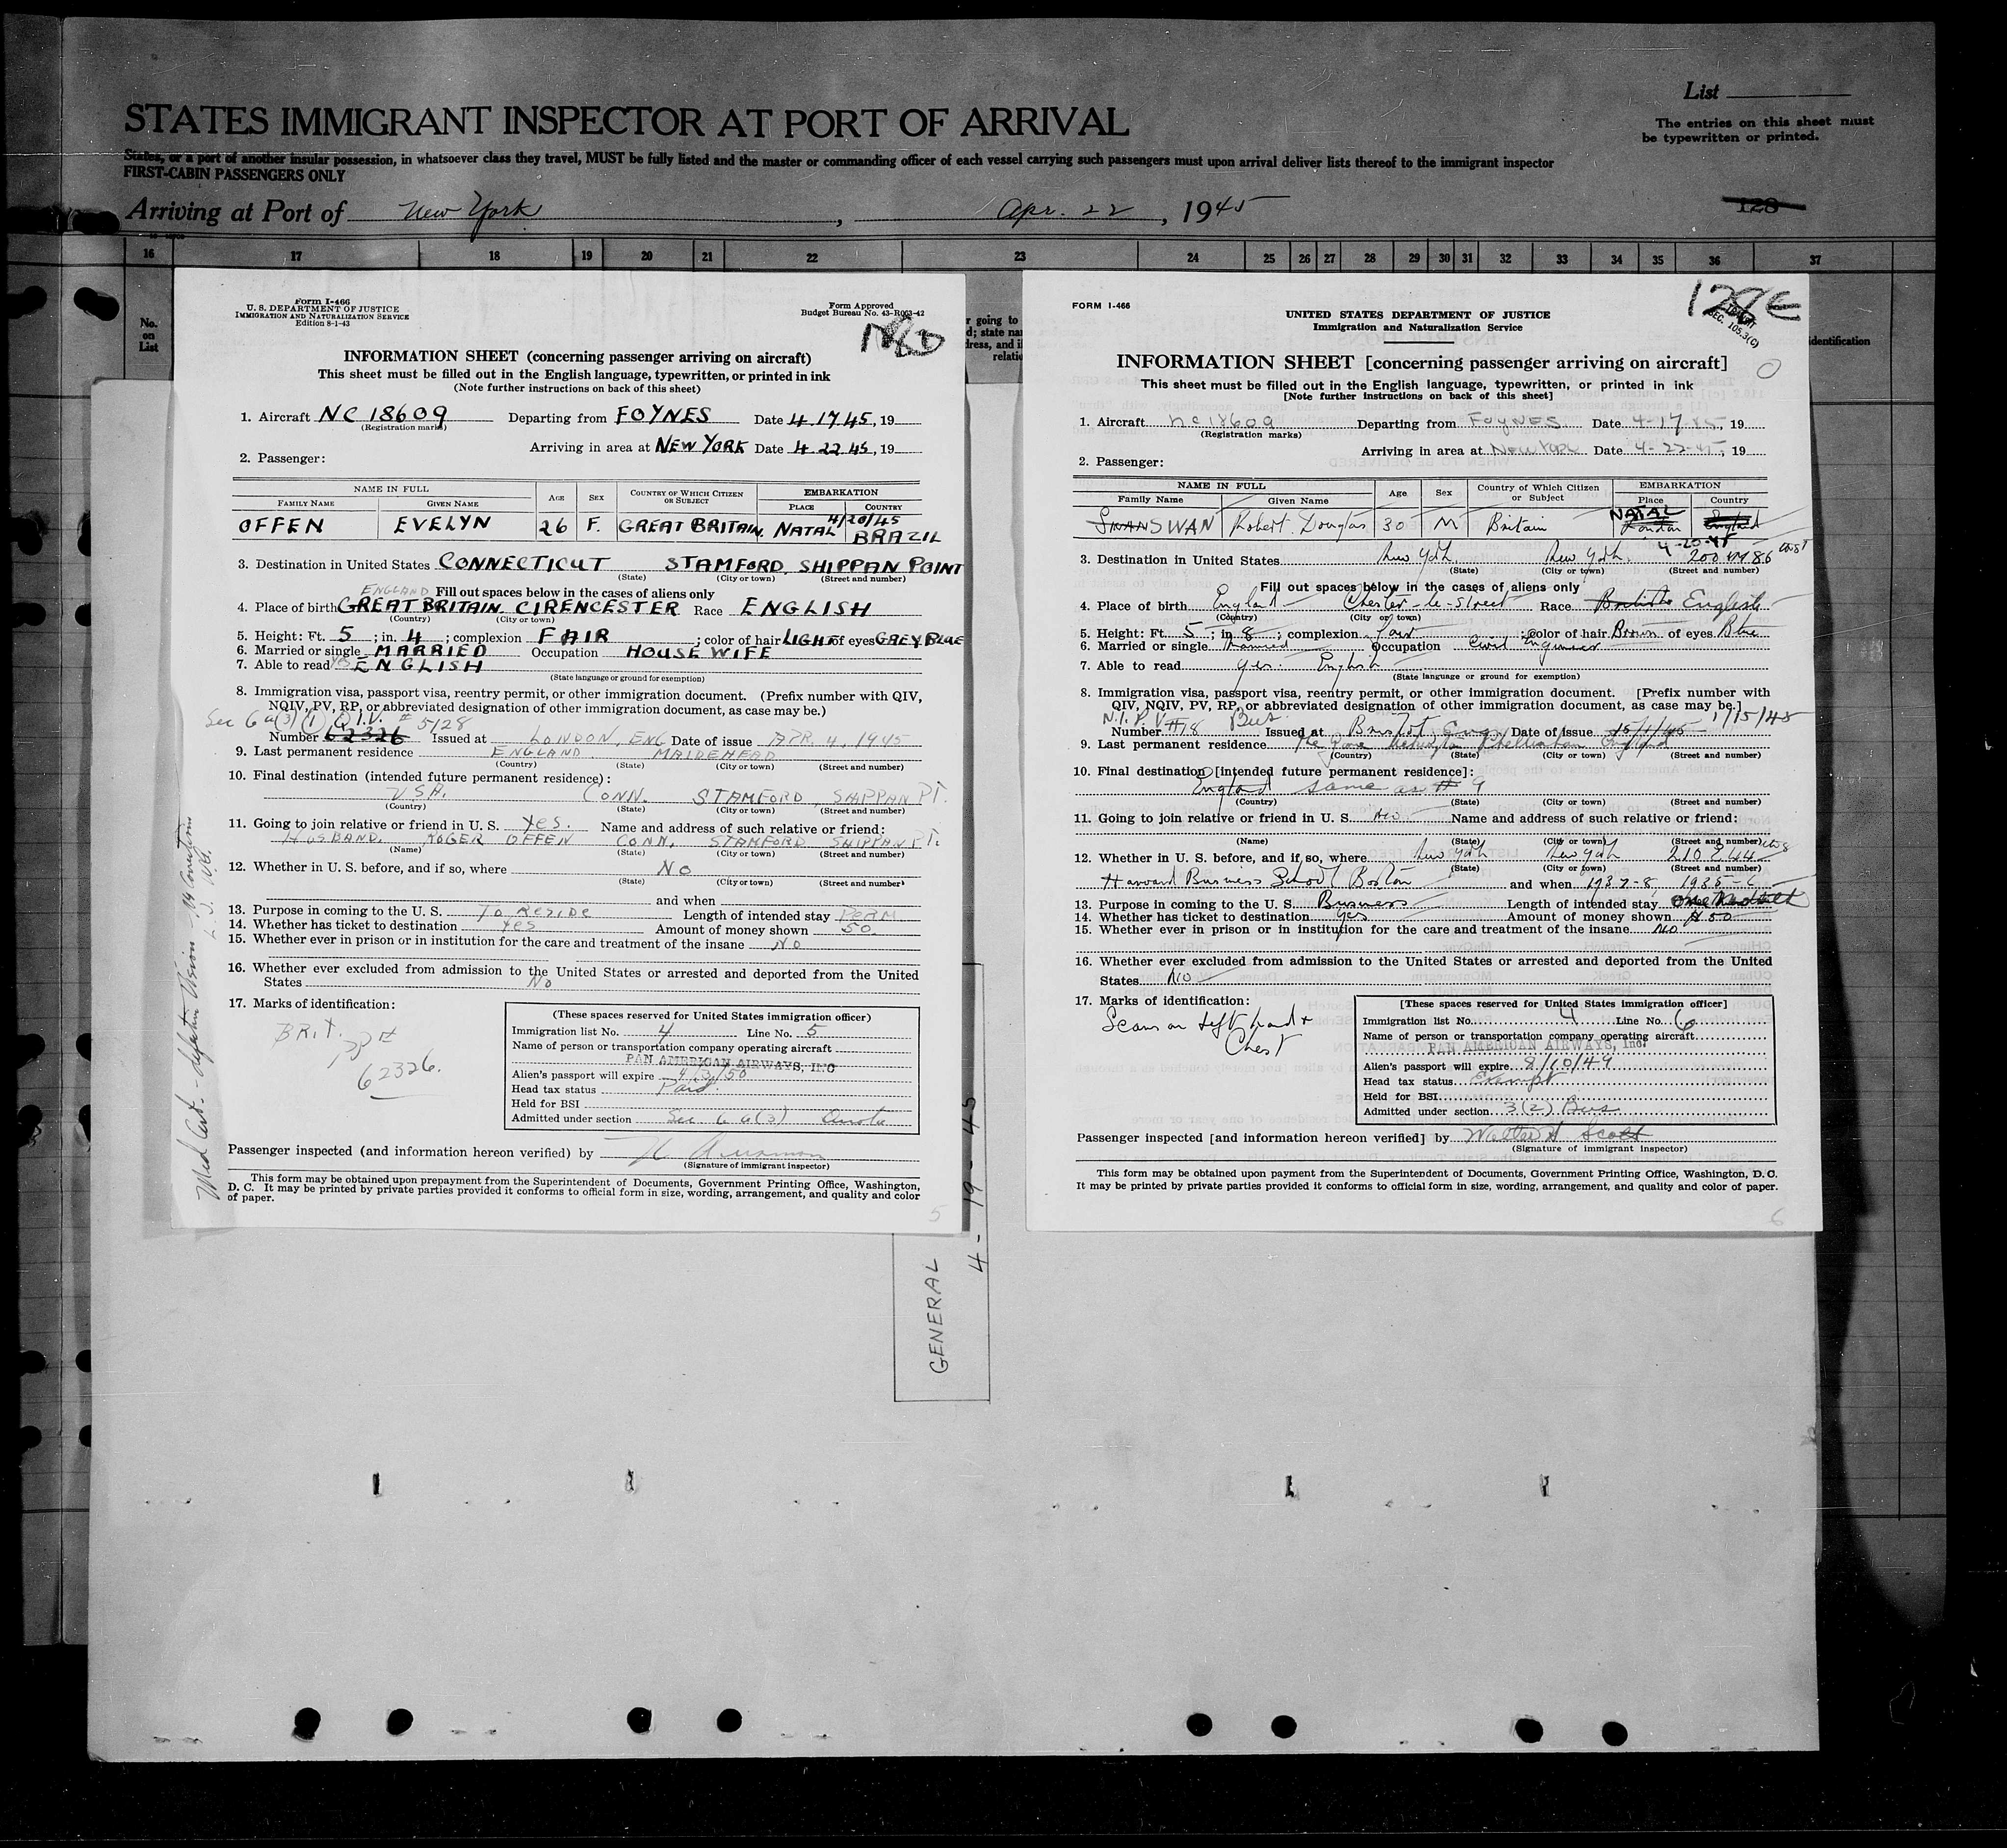 List
STATES IMMIGRANT INSPECTOR AT PORT OF ARRIVAL
The entries on this sheet must
be typewritten or printed.
States, or a port of another insular possession, in whatsoever class they travel, MUST be fully listed and the master or commanding officer of each vessel carrying such passengers must upon arrival deliver lists thereof to the immigrant inspector
FIRST-CABIN PASSENGERS ONLY
Arriving at Port of New York, Apr. 22, 1945
128
16 17 18 19 20 21 22 23 24 25 26 27 28 29 30 31 32 33 34 35 36 37
No.
on
List
r going to
d; state nam
dress, and i
relati
identification
Form I-466
U. S. DEPARTMENT OF JUSTICE
IMMIGRATION AND NATURALIZATION SERVICE
Edition 8-1-43
Form Approved
Budget Bureau No. 43-R003-42
INFORMATION SHEET (concerning passenger arriving on aircraft)
This sheet must be filled out in the English language, typewritten, or printed in ink
(Note further instructions on back of this sheet)
1. Aircraft NC 18609 Departing from FOYNES Date 4.17.45, 19
(Registration marks)
Arriving in area at NEW YORK Date 4.22.45, 19
2. Passenger:
NAME IN FULL AGE SEX COUNTRY OF WHICH CITIZEN OR SUBJECT EMBARKATION
FAMILY NAME GIVEN NAME PLACE COUNTRY
4/20/45
OFFEN EVELYN 26 F. GREAT BRITAIN. NATAL BRAZIL
3. Destination in United States CONNECTICUT STAMFORD. SHIPPAN POINT
(State) (City or town) (Street and number)
ENGLAND Fill out spaces below in the cases of aliens only
4. Place of birth GREAT BRITAIN. CIRENCESTER Race ENGLISH
(Country) (City or town)
5. Height: Ft. 5; in. 4; complexion FAIR; color of hair LIGHT of eyes GREY BLUE
6. Married or single MARRIED Occupation HOUSE WIFE
7. Able to read YES ENGLISH
(State language or ground for exemption)
8. Immigration visa, passport visa, reentry permit, or other immigration document. (Prefix number with QIV,
NQIV, PV, RP, or abbreviated designation of other immigration document, as case may be.)
Sec 6a(3)(1) Q.I.V. # 5128
Number 62326 Issued at LONDON, ENG Date of issue APR. 4, 1945
9. Last permanent residence ENGLAND MAIDENEAD
(Country) (State) (City or town) (Street and number)
10. Final destination (intended future permanent residence):
U.S.A. CONN. STAMFORD, SHIPPAN PT.
(Country) (State) (City or town) (Street and number)
11. Going to join relative or friend in U. S. Yes. Name and address of such relative or friend:
HUSBAND. ROGER OFFEN CONN. STAMFORD SHIPPAN PT.
(Name) (State) (City or town) (Street and number)
12. Whether in U. S. before, and if so, where NO
(State) (City or town) (Street and number)
and when
13. Purpose in coming to the U. S. To Reside Length of intended stay PERM
14. Whether has ticket to destination Yes Amount of money shown 50.
15. Whether ever in prison or in institution for the care and treatment of the insane No
16. Whether ever excluded from admission to the United States or arrested and deported from the United
States No
17. Marks of identification:
BRIT.
PP#
62326.
(These spaces reserved for United States immigration officer)
Immigration list No. 4 Line No. 5
Name of person or transportation company operating aircraft
PAN AMERICAN AIRWAYS, INC
Alien's passport will expire 4/3/50
Head tax status Paid.
Held for BSI
Admitted under section Sec 6 a(3) Quota
Passenger inspected (and information hereon verified) by
(Signature of immigrant inspector)
This form may be obtained upon prepayment from the Superintendent of Documents, Government Printing Office, Washington,
D. C. It may be printed by private parties provided it conforms to official form in size, wording, arrangement, and quality and color
of paper.
5
Med Cert. - defective Vision
GENERAL
4-19-45
FORM I-466
128E
SEC. 105.3(C)
UNITED STATES DEPARTMENT OF JUSTICE
Immigration and Naturalization Service
INFORMATION SHEET [concerning passenger arriving on aircraft]
This sheet must be filled out in the English language, typewritten, or printed in ink
[Note further instructions on back of this sheet]
1. Aircraft nc 18609 Departing from FOYNES Date 4-17-45, 19
(Registration marks)
Arriving in area at New York Date 4-22-45, 19
2. Passenger:
NAME IN FULL Age Sex Country of Which Citizen or Subject EMBARKATION
Family Name Given Name Place Country
SWAN Robert Douglas 30 M Britain NATAL London England
4-20-45
3. Destination in United States New York New York. 200 W 86
(State) (City or town) (Street and number)
Fill out spaces below in the cases of aliens only
4. Place of birth England Chester-le-Street Race British English
(Country) (City or town)
5. Height: Ft. 5; in 8; complexion fair; color of hair Brown of eyes Blue
6. Married or single Married Occupation Civil Engineer
7. Able to read yes. English
(State language or ground for exemption)
8. Immigration visa, passport visa, reentry permit, or other immigration document. [Prefix number with
QIV, NQIV, PV, RP, or abbreviated designation of other immigration document, as case may be.]
N.I.P.V. Bus. 1/15/45
Number #78 Issued at Bristol Eng Date of issue 15/1/45
9. Last permanent residence England
(Country) (State) (City or town) (Street and number)
10. Final destination [intended future permanent residence]:
England same as # 9
(Country) (State) (City or town) (Street and number)
11. Going to join relative or friend in U. S. No Name and address of such relative or friend:
(Name) (State) (City or town) (Street and number)
12. Whether in U. S. before, and if so, where New York New York 210 E 44
(State) (City or town) (Street and number)
Harvard Business School Boston and when 1937-8, 1935-6
13. Purpose in coming to the U. S. Business Length of intended stay
14. Whether has ticket to destination yes Amount of money shown $50
15. Whether ever in prison or in institution for the care and treatment of the insane No
16. Whether ever excluded from admission to the United States or arrested and deported from the United
States No
17. Marks of identification:
Scars on left hand +
Chest
[These spaces reserved for United States immigration officer]
Immigration list No. 4 Line No. 6
Name of person or transportation company operating aircraft
PAN AMERICAN AIRWAYS, Inc.
Alien's passport will expire 8/10/49
Head tax status Exempt
Held for BSI
Admitted under section 3(2) Bus
Passenger inspected [and information hereon verified] by Walter H Scott
(Signature of immigrant inspector)
This form may be obtained upon payment from the Superintendent of Documents, Government Printing Office, Washington, D. C.
It may be printed by private parties provided it conforms to official form in size, wording, arrangement, and quality and color of paper.
6